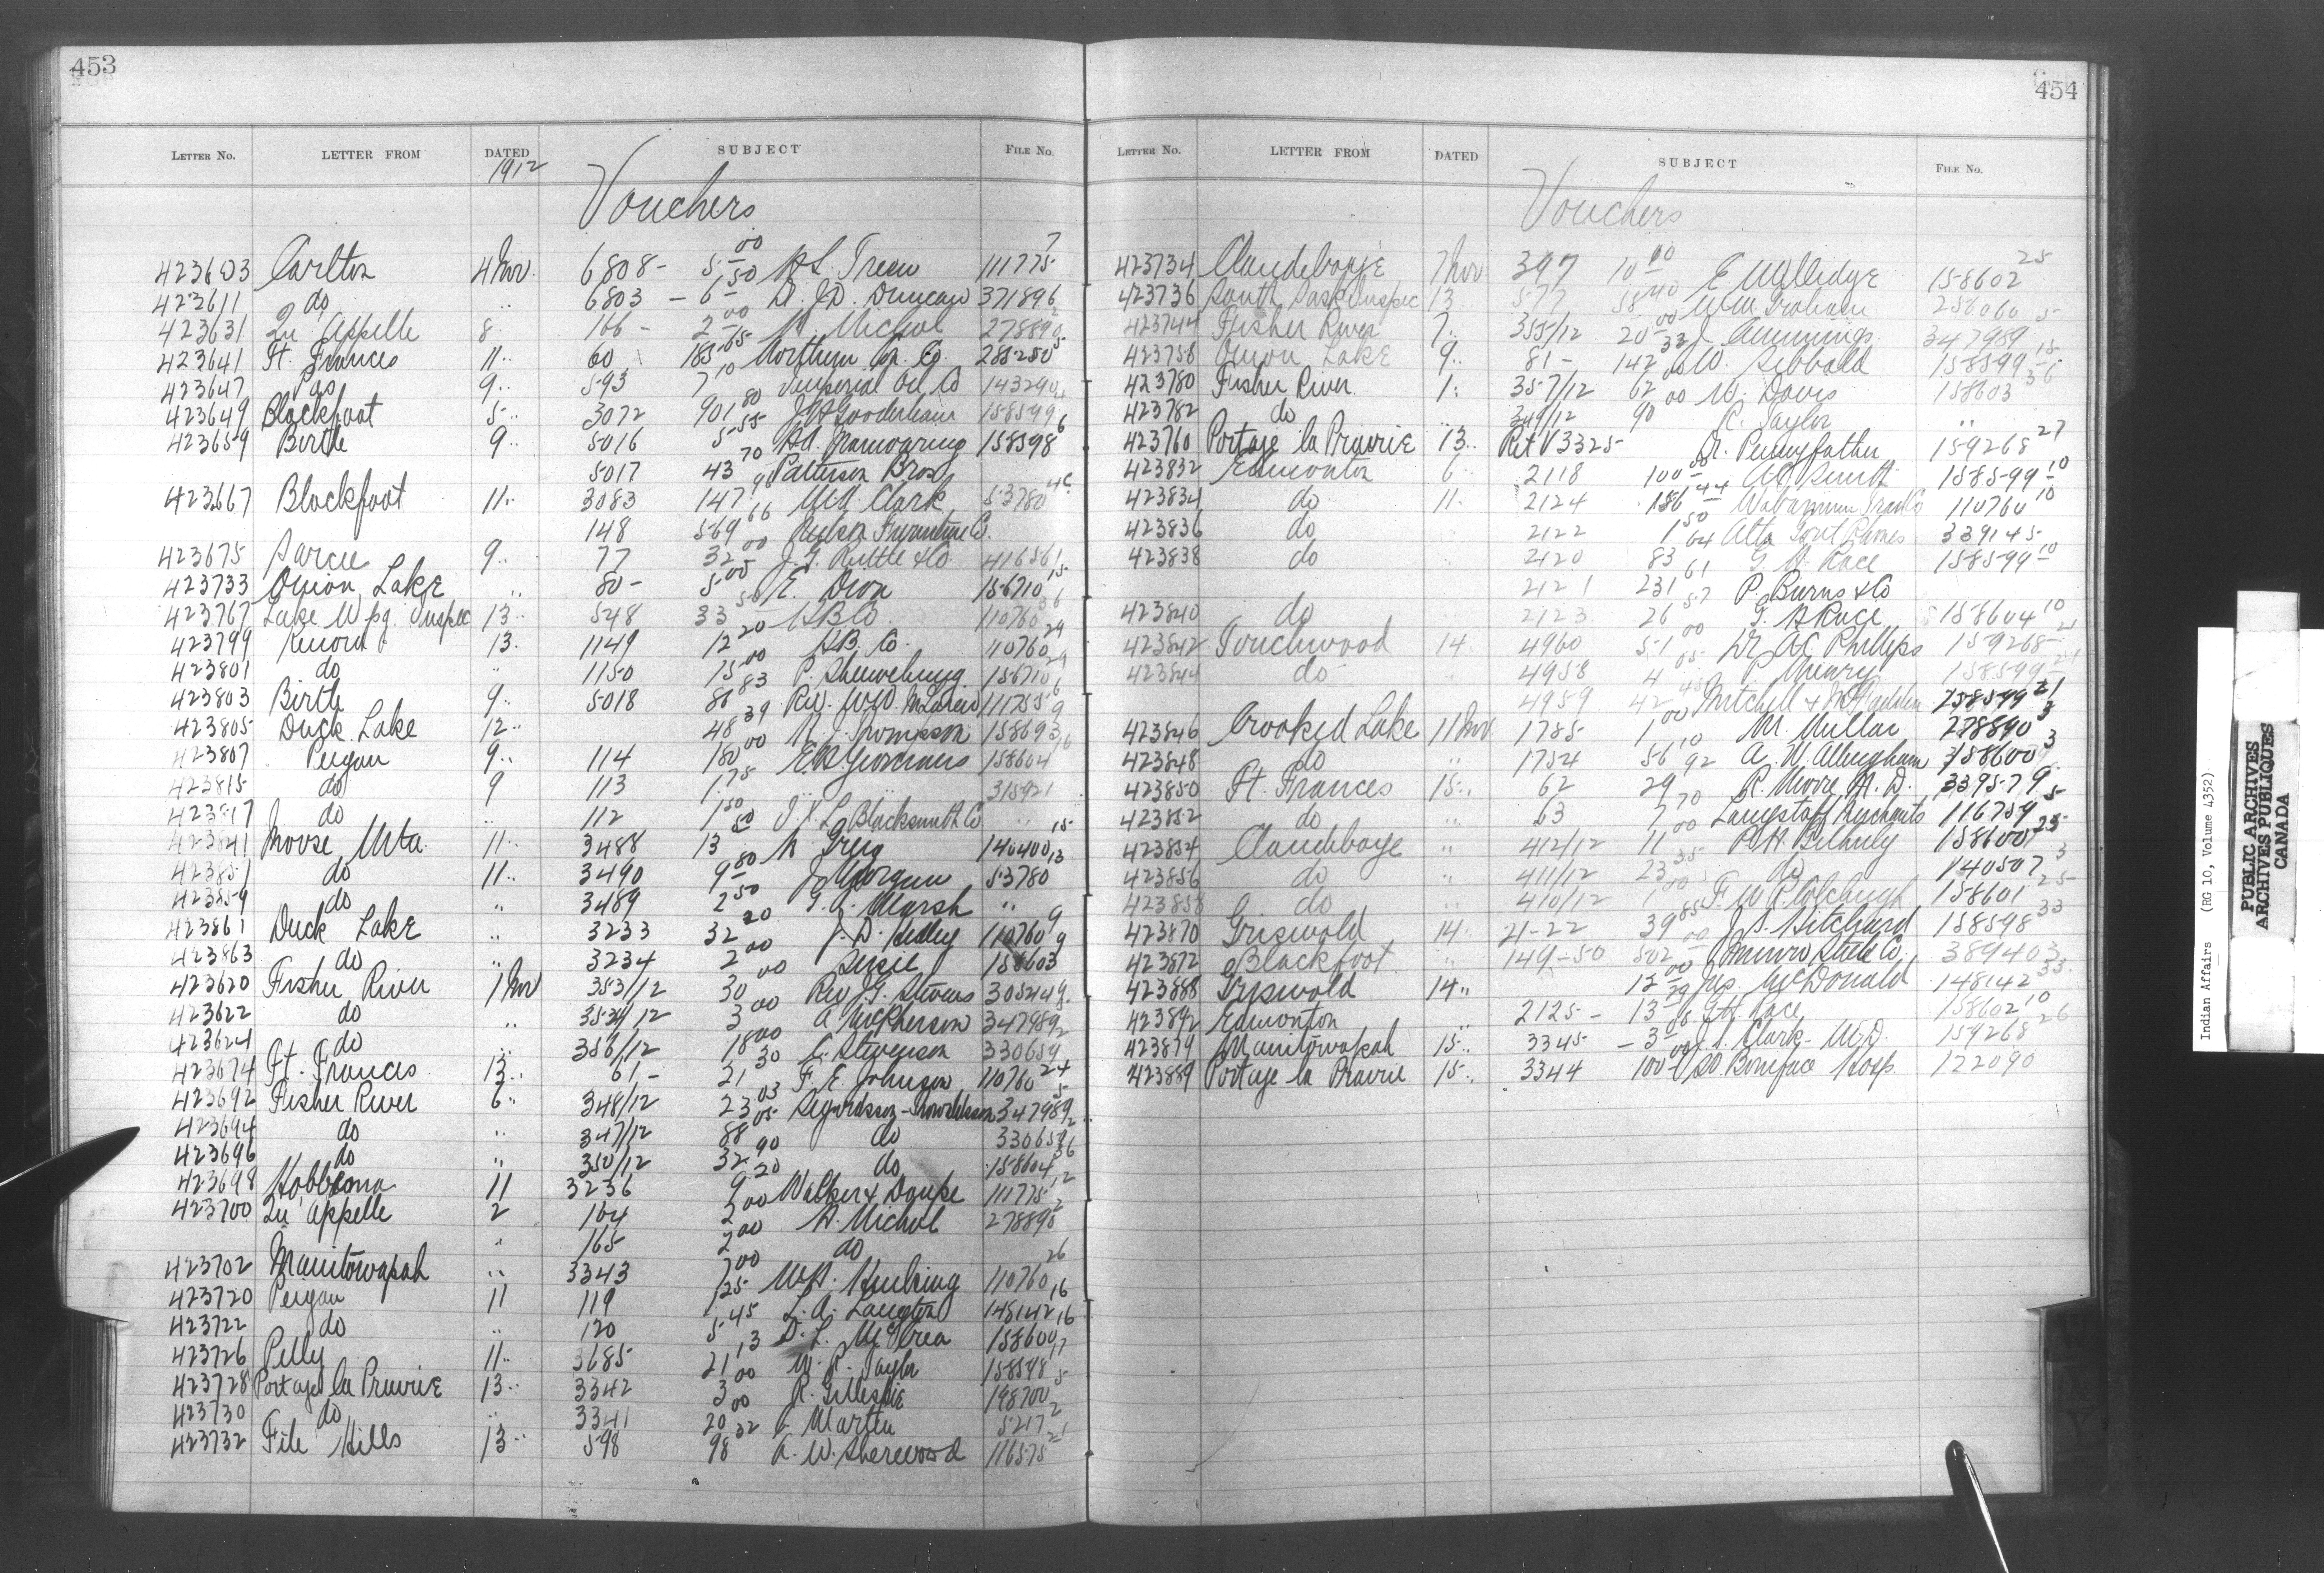 453
LETTER NO. LETTER FROM DATED SUBJECT FILE NO.
1912
Vouchers
423603 Carlton 4 Nov. 6808 - 5.00 111775 7
423611 do " 6803 - 6.50 Dr. J.D. Duncan 371896
423631 Qu'Appelle 8 166 - 2.00 Nichol 278890 2
423641 Ft. Frances 11 " 60 185.65 Northern Con. Co. 288250 5
423647 Pas 9 " 593 7.10 Imperial Oil Co 143290
423649 Blackfoot 5 " 3072 901.80 J.H. Gooderham 158599 4
423659 Birtle 9 " 5016 5.55 158598 6
5017 43.70 Patterson Bros
423667 Blackfoot 11 " 3083 147.96 Clark 53780
148 569.66 Furniture Co.
423675 Sarcee 9 " 77 32.00 J.G. Ruttle & Co 416561
423733 Onion Lake " 80 - 5.00 E. Dion 156710 15
423767 Lake Wpg. Inspec 13 " 548 33.50 H B Co. 110760 36
423799 Kenora 13 " 1149 12.20 H.B. Co. 110760 29
423801 do " 1150 15.00 P. 156710 29
423803 Birtle 9 " 5018 88.83 Rev. W.W. McLaren 111755 6
423805 Duck Lake 12 " 48.39 Thompson 158693 9
423807 Peigan 9 " 114 180.00 158604 16
423815 do 9 113 1.75 " 315921
423817 do " 112 1.50 Blacksmith Co " "
423841 Moose Mta. 11 " 3488 13.50 Greig 140400 15
423857 do 11 " 3490 9.80 53780 13
423859 do " 3489 2.50 G. Marsh " "
423861 Duck Lake " 3233 32.20 J.D. 110760 9
423863 do " 3234 2.00 158603 9
423620 Fisher River 1 Nov 353/12 30.00 Rev J.G. Stevens 305449
423622 do " 354/12 3.00 A. McPherson 347989
423624 do " 356/12 18.00 C. Stevenson 330659 2
423674 Ft. Frances 13 " 61 - 21.30 F. E. Johnson 110760 24
423692 Fisher River 6 " 348/12 23.03 347989 5
423694 do " 347/12 88.05 do 330659 2
423696 do " 350/12 32.90 do 158604 36
423698 Hobbema 11 3236 9.20 Walker & Doupe 111775 12
423700 Qu'Appelle 2 164 2.00 H. Nichol 278890 2
" 165 2.00 do
423702 Manitowapah " 3343 7.00 110760 26
423720 Peigan 11 119 1.25 L.A. Langton 148142 16
423722 do " 120 5.45 D.L. McCrea 158600 16
423726 Pelly 11 " 3685 21.13 W.R. Taylor 158598 17
423728 Portage la Prairie 13 " 3342 3.00 R. Gillespie 198700 5
423730 do " 3341 20.00 Martin 5217 2
423732 File Hills 13 " 598 98.32 A.W. Sherwood 116575 21
454
LETTER NO. LETTER FROM DATED SUBJECT FILE NO.
Vouchers
423734 Clandeboye 7 Nov 397 10.00 E Milledge 158602 25
423736 South Sask Inspec 13 577 58.40 W.M. Graham 256060
423744 Fisher River 7 " 355/12 20.00 J. Cummings 347989 5
423758 Onion Lake 9 " 81 - 142.33 W. Sibbald 158599 15
423780 Fisher River 1 " 357/12 62.00 W. Davis 158603 36
423782 do 349/12 90.00 R. Taylor " "
423760 Portage la Prairie 13 " Ret V 3325 Dr. Pennyfather 159268 27
423832 Edmonton 6 " 2118 100.00 Smith 158599 10
423834 do 11 " 2124 186.44 Wabamun 110760 10
423836 do 2122 1.50 Alta Govt Phones 339145
423838 do 2120 83.64 G.H. Race 158599 10
2121 231.61 P. Burns & Co
423840 do 2123 26.57 G.H. Race 158604 10
423842 Touchwood 14 " 4960 51.00 Dr. Phillips 159268 21
423844 do " 4958 4.05 P. Henry 158599 21
4959 42.45 Mitchell & McFadden 158599 21
423846 Crooked Lake 11 Nov 1785 1.00 M. Millar 278890 3
423848 do " 1754 56.10 A.W. Allingham 158600 3
423850 Ft. Frances 15 " 62 29.92 R. Moore M.D. 339579
423852 do " 63 7.70 Langstaff Merchants 116759 5
423854 Clandeboye " 412/12 11.00 158600 25
423856 do " 411/12 23.35 do 140507 3
423858 do " 410/12 1.00 F.W.R. Colcleugh 158601 25
423870 Griswold 14 " 21-22 39.85 J.S. Pitchford 158598 33
423872 Blackfoot " 149-50 502.00 Munro Steel Co. 389403
423888 Griswold 14 " 12.00 Jas. McDonald 148142 33
423892 Edmonton " 2125 - 13.29 G.H. Race 158602 10
423879 Manitowapah 15 " 3345 - 3.00 Clark M.D. 159268 26
423889 Portage la Prairie 15 " 3344 100.00 St. Boniface Hosp. 122090
Indian Affairs (RG 10, Volume 4352)
PUBLIC ARCHIVES
ARCHIVES PUBLIQUES
CANADA